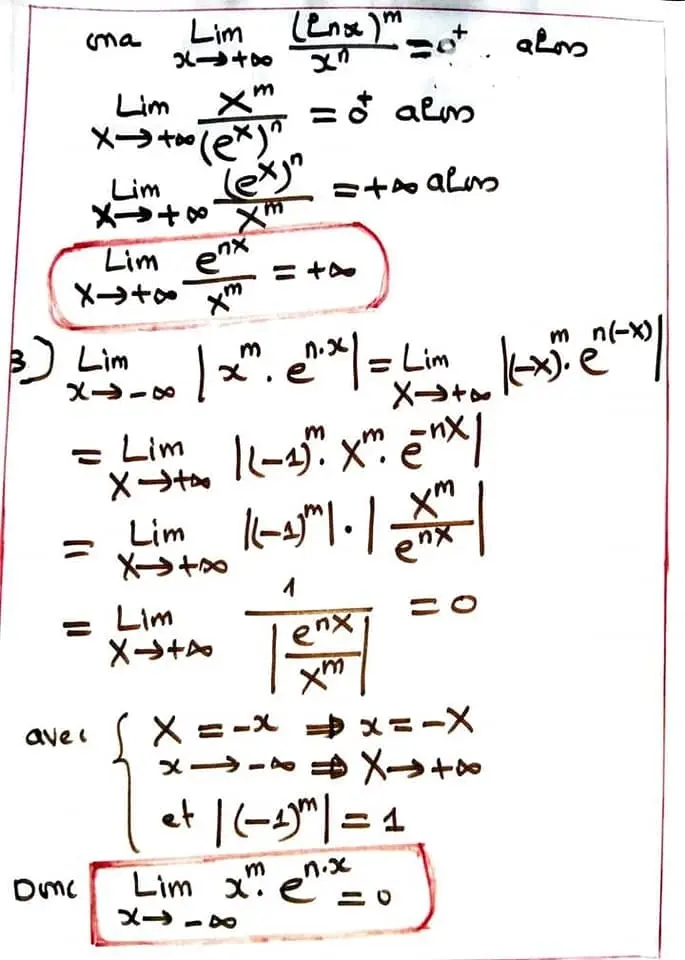 ona Lim x→+∞ (Lnx)^m / x^n = 0^+ . alors
Lim X→+∞ X^m / (e^X)^n = 0^+ alors
Lim X→+∞ (e^X)^n / X^m = +∞ alors
Lim X→+∞ e^{nX} / X^m = +∞
3) Lim x→-∞ | x^m . e^{n.x} | = Lim X→+∞ | (-X)^m . e^{n(-X)} |
= Lim X→+∞ | (-1)^m . X^m . e^{-nX} |
= Lim X→+∞ | (-1)^m | . | X^m / e^{nX} |
= Lim X→+∞ 1 / | e^{nX} / X^m | = 0
avec { X = -x ⇒ x = -X
x → -∞ ⇒ X → +∞
et | (-1)^m | = 1
Donc Lim x→-∞ x^m . e^{n.x} = 0